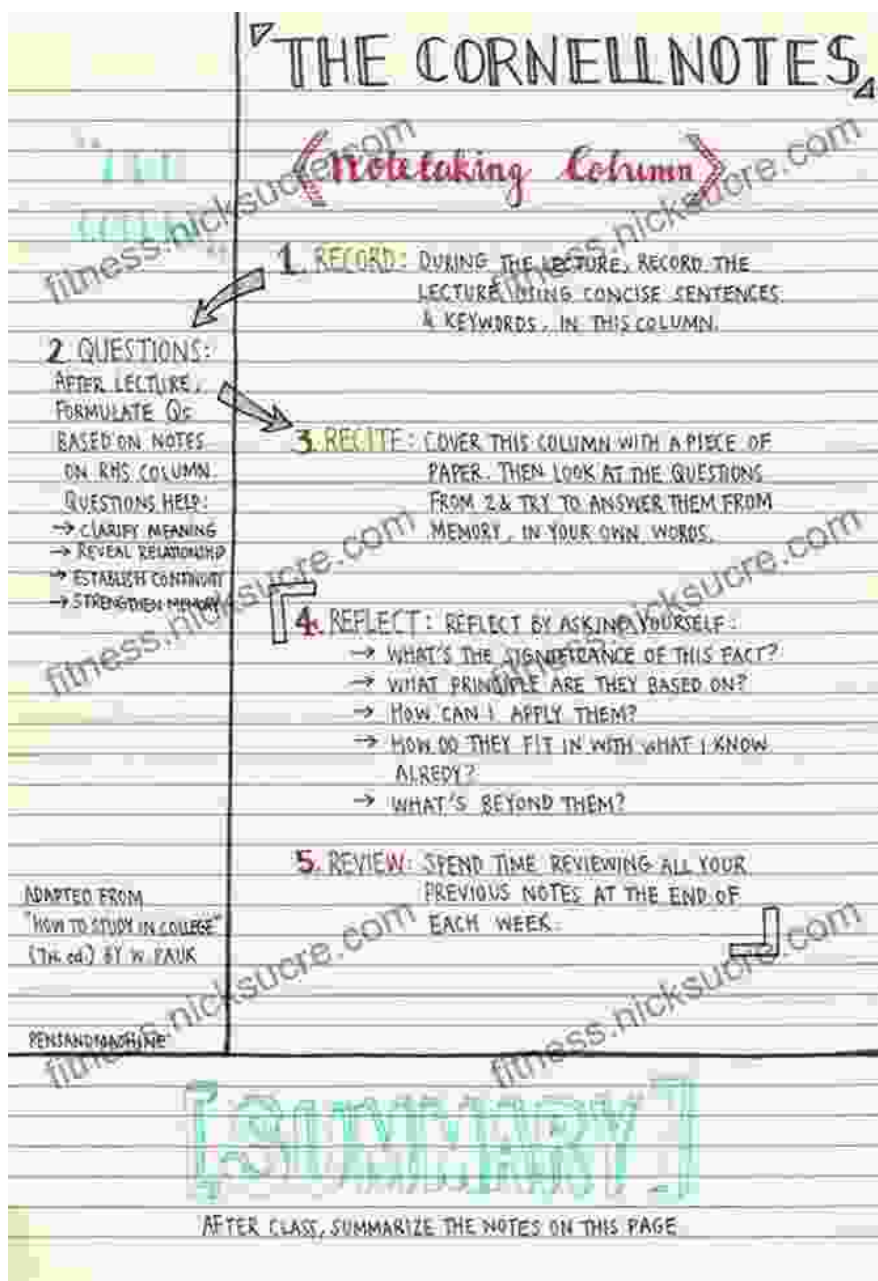 THE CORNELL NOTES
Notetaking Column
1. RECORD: DURING THE LECTURE, RECORD THE
LECTURE USING CONCISE SENTENCES
& KEYWORDS, IN THIS COLUMN.
2 QUESTIONS:
AFTER LECTURE,
FORMULATE Qs
BASED ON NOTES
ON RHS COLUMN.
QUESTIONS HELP:
→ CLARIFY MEANING
→ REVEAL RELATIONSHIP
→ ESTABLISH CONTINUITY
→ STRENGTHEN MEMORY
3. RECITE: COVER THIS COLUMN WITH A PIECE OF
PAPER. THEN LOOK AT THE QUESTIONS
FROM 2 & TRY TO ANSWER THEM FROM
MEMORY, IN YOUR OWN WORDS.
4. REFLECT: REFLECT BY ASKING YOURSELF:
→ WHAT'S THE SIGNIFICANCE OF THIS FACT?
→ WHAT PRINCIPLE ARE THEY BASED ON?
→ HOW CAN I APPLY THEM?
→ HOW DO THEY FIT IN WITH WHAT I KNOW
ALREDY?
→ WHAT'S BEYOND THEM?
5. REVIEW: SPEND TIME REVIEWING ALL YOUR
PREVIOUS NOTES AT THE END OF
EACH WEEK.
ADAPTED FROM
"HOW TO STUDY IN COLLEGE"
(7th ed.) BY W. PAUK
PENSANDMACHINE
[SUMMARY]
AFTER CLASS, SUMMARIZE THE NOTES ON THIS PAGE
fitness.nicksucre.com
fitness.nicksucre.com
fitness.nicksucre.com
fitness.nicksucre.com
fitness.nicksucre.com
fitness.nicksucre.com